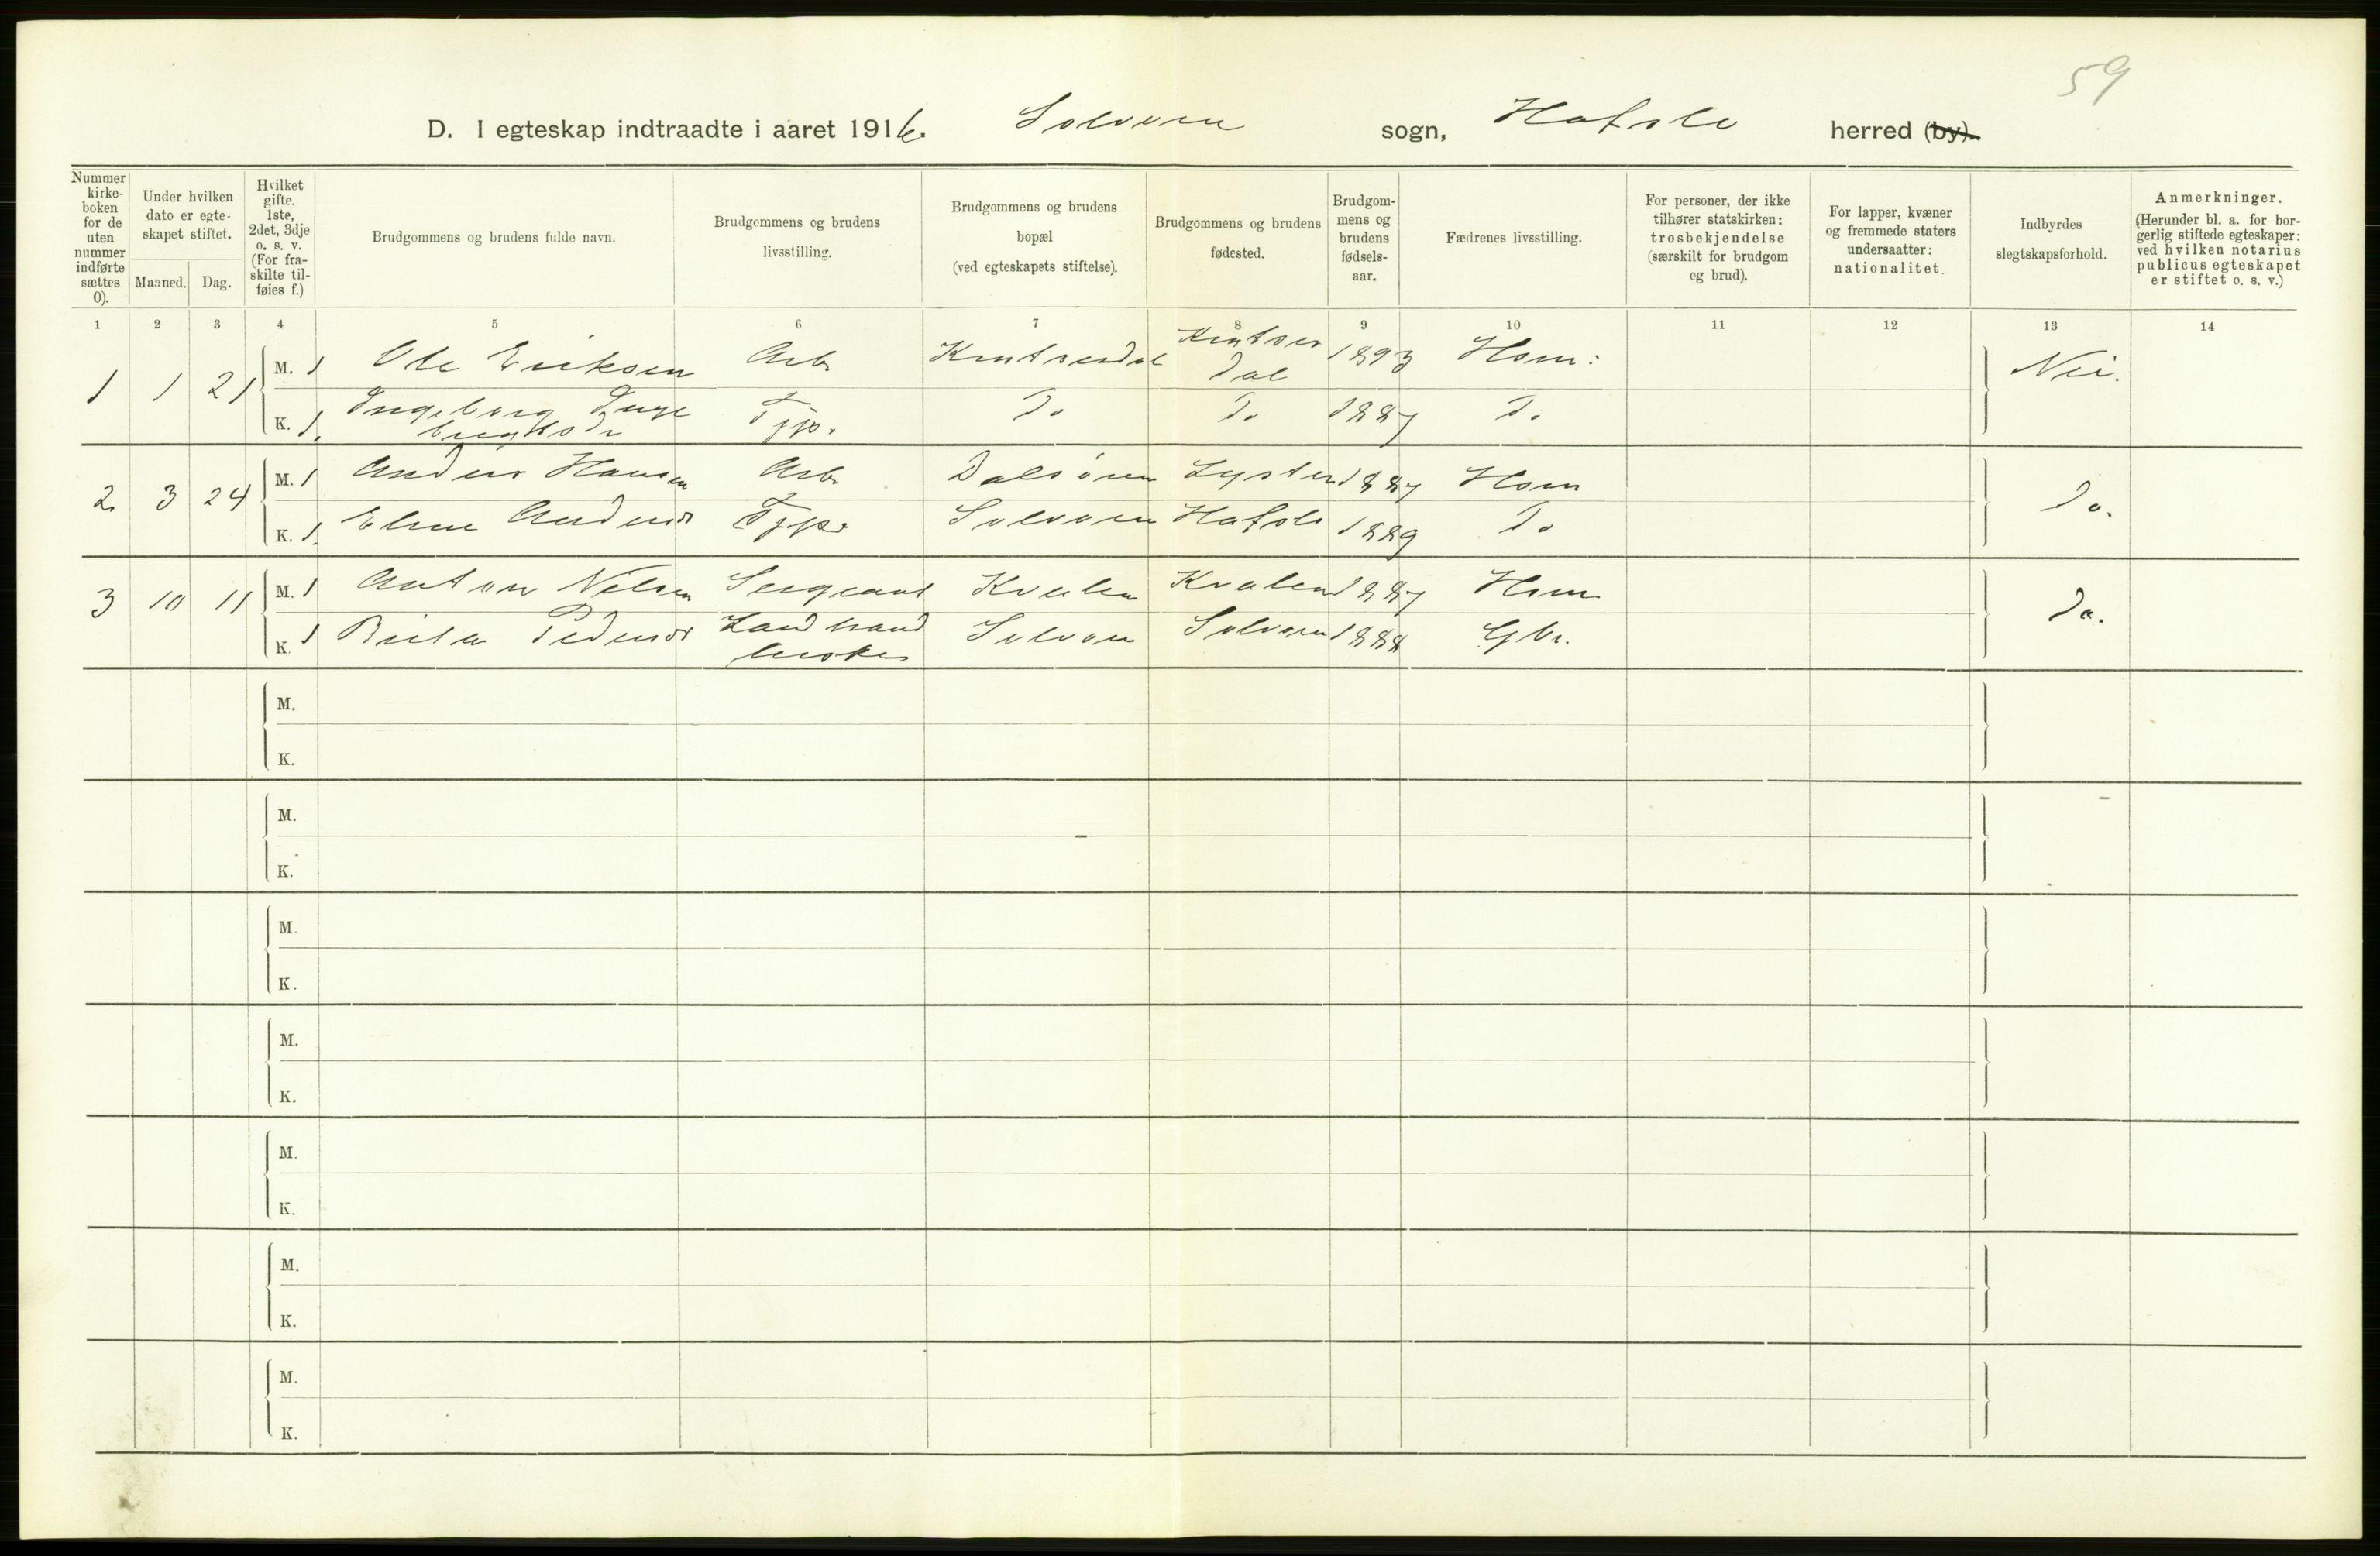 59
D. I egteskap indtraadte i aaret 1916. Solvorn sogn, Hafslo herred (by).
Nummer kirke-boken for de uten nummer indførte sættes 0).
Under hvilken dato er egte-skapet stiftet.
Maaned. Dag.
Hvilket gifte. 1ste, 2det, 3dje o. s. v. (For fra-skilte til-føies f.)
Brudgommens og brudens fulde navn.
Brudgommens og brudens livsstilling.
Brudgommens og brudens bopæl (ved egteskapets stiftelse).
Brudgommens og brudens fødested.
Brudgom-mens og brudens fødsels-aar.
Fædrenes livsstilling.
For personer, der ikke tilhører statskirken: trosbekjendelse (særskilt for brudgom og brud).
For lapper, kvæner og fremmede staters undersaatter: nationalitet.
Indbyrdes slegtskapsforhold.
Anmerkninger. (Herunder bl. a. for bor-gerlig stiftede egteskaper: ved hvilken notarius publicus egteskapet er stiftet o. s. v.)
1 2 3 4 5 6 7 8 9 10 11 12 13 14
1 1 21 M. 1 Ole Eriksen Arb. Krutsendal Krutsen dal 1893 Hsm: Nei.
K. 1. Ingeborg Inge brigtsdr Tjp. Do Do 1887 Do
2 3 24 M. 1 Anders Hansen Arb. Dalsøren Lyster 1887 Hsm Do.
K. 1. Eline Andersdr Tjp. Solvorn Hafslo 1889 Do
3 10 11 M. 1 Anton Nilsen Sergeant Kvalen Kvalen 1887 Hsm Do.
K. 1 Brita Pedersdr Landhand lerske Solvorn Solvorn 1888 Gbr.
M.
K.
M.
K.
M.
K.
M.
K.
M.
K.
M.
K.
M.
K.